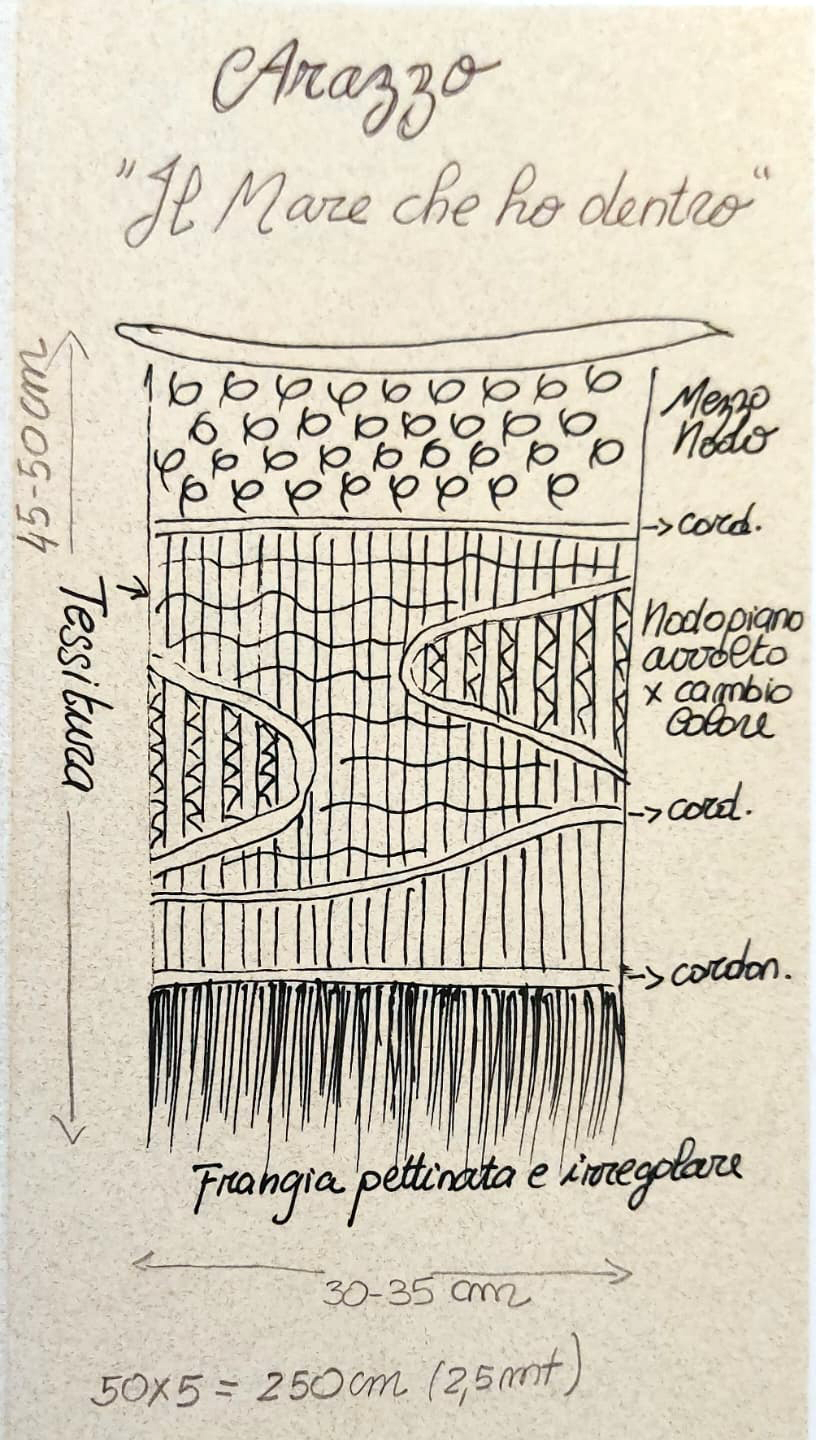 Arazzo
"Il Mare che ho dentro"
45-50cm
Mezzo
Nodo
→ cord.
Tessitura
Nodo piano
avvolto
x cambio
Colore
→ cord.
→ cordon.
Frangia pettinata e irregolare
30-35 cm
50x5 = 250cm (2,5mt)